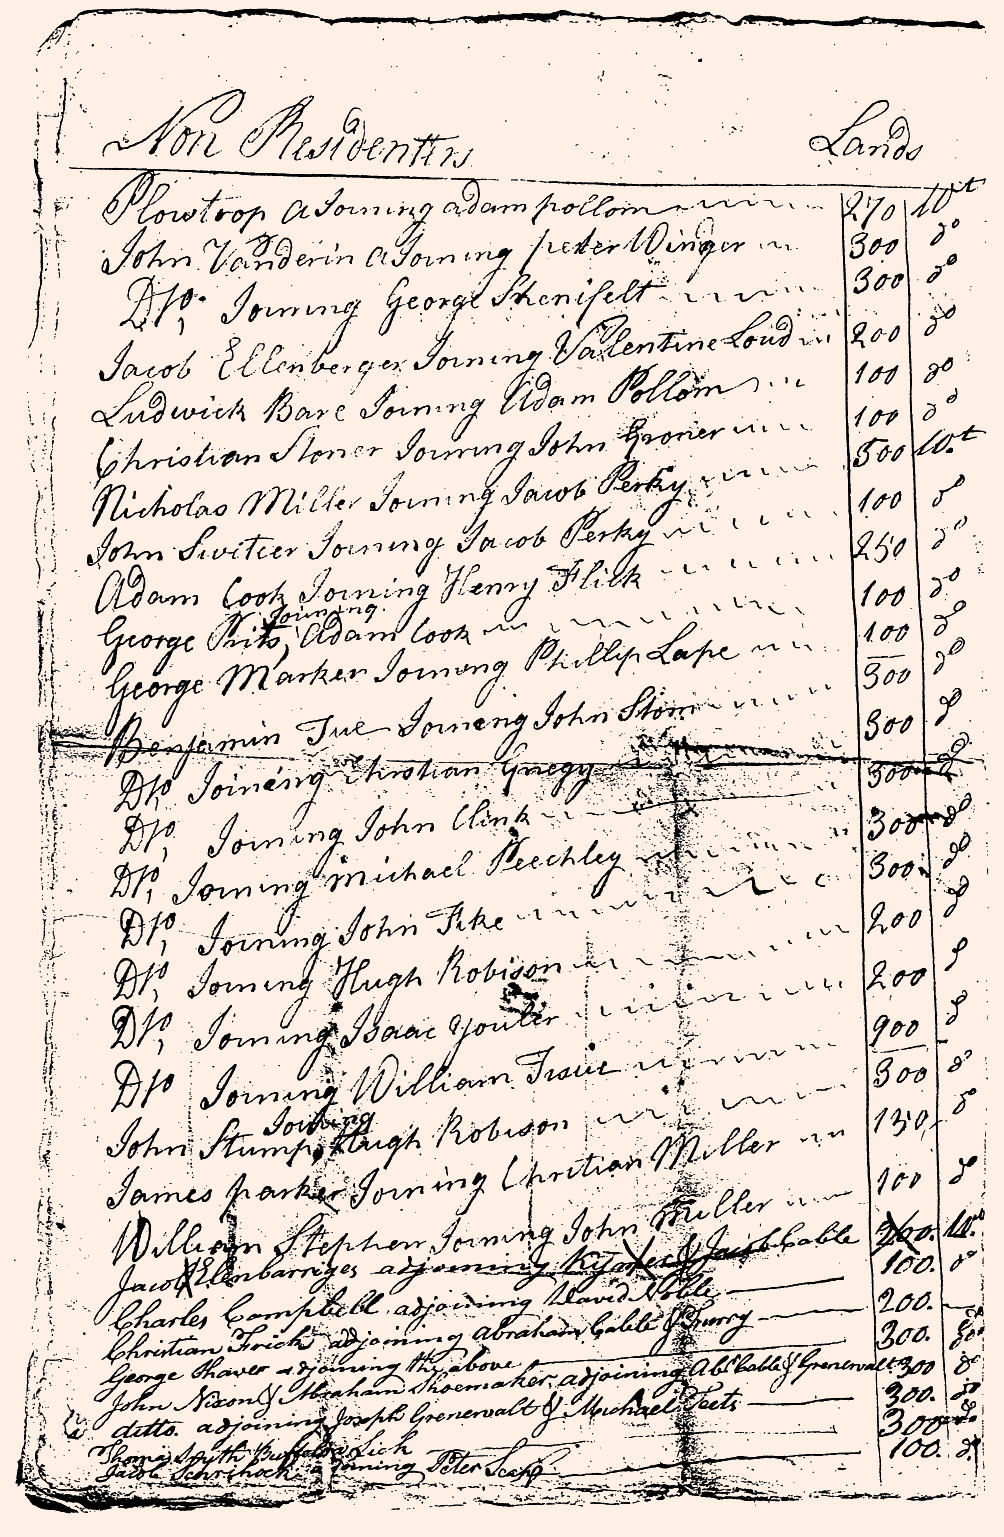 Non Residenters Lands
Plowtrop aJoining adam pollom 270 10ct
John Vanderin aJoining peter Winger 300 do
D/o. Joining George Shenifelt 300 do
Jacob Ellenberger Joining Valentine Loud 200 do
Ludwick Bare Joining Adam Pollom 100 do
Christian Stoner Joining John Groner 100 do
Nicholas Miller Joining Jacob Perky 500 10.ct
John Switier Joining Jacob Perky 100 do
Adam Cook Joining Henry Flick 250 do
Joining
George Frits, Adam Cook 100 do
George Marker Joining Phillip Lape 100 do
300 do
Benjamin Tue Joineng John Stom 300 do
D/o, Joineng Christian Gnegy 300 do
D/o, Joining John Clink 300 do
D/o, Joining Michael Peechley 300 do
D/o, Joining John Fike 200 do
D/o, Joining Hugh Robison 200 do
D/o, Joining Isaac 900 do
D/o Joining William 300 do
Joining
John Stump, Hugh Robison 150 do
James parker Joining Chritian Miller
William Stephen Joining John Miller 100 do
Jacob Elenbarriger adjoining & Jacob Cable 200. 10.
Charles Campbell adjoining David Noble 100. do
Christian Frick adjoining Abraham Cable & Furry 200.
George Shaver adjoining the above 300. do
John Nixon & Abraham Shoemaker adjoining Ab. Cable & Grenewalt 300 do
ditto. adjoining Joseph Grenerwalt & Michael Teets 300. do
Thomas Smyth Buffaloe Lick 300 do
Jacob adjoining Peter 100. do.